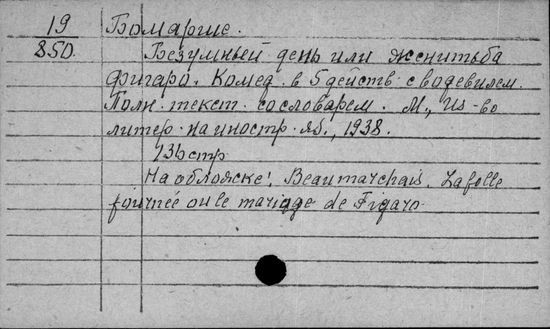 19 Бомарше.
850. Безумный день или женитьба
Фигаро. Комед. в 5 действ. с водевилем.
Полн. текст со словарем. М., Из-во
литер. на иностр. яз., 1938.
136 стр.
На обложке: Beaumarchais. La folle
journée ou le mariage de Figaro.